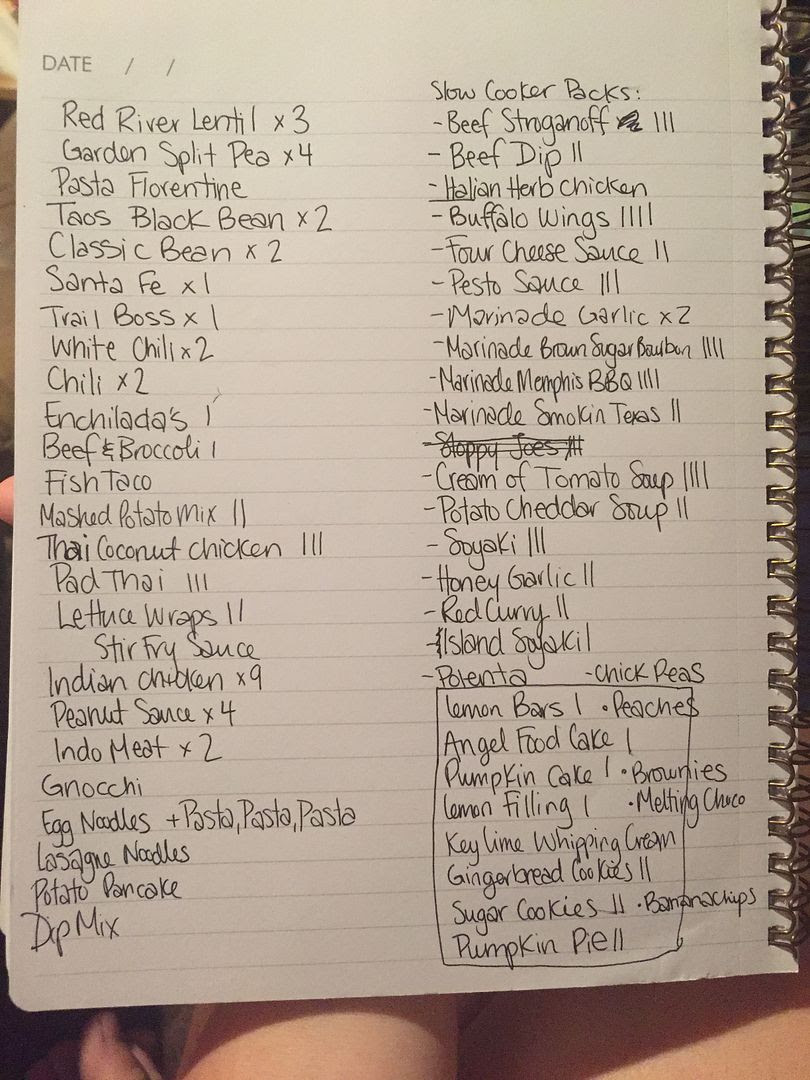 DATE / /
Red River Lentil x 3
Garden Split Pea x 4
Pasta Florentine
Taos Black Bean x 2
Classic Bean x 2
Santa Fe x 1
Trail Boss x 1
White Chili x 2
Chili x 2
Enchilada's |
Beef & Broccoli |
Fish Taco
Mashed Potato Mix ||
Thai Coconut chicken |||
Pad Thai |||
Lettuce Wraps ||
Stir Fry Sauce
Indian chicken x 9
Peanut Sauce x 4
Indo Meat x 2
Gnocchi
Egg Noodles + Pasta, Pasta, Pasta
Lasagne Noodles
Potato Pancake
Dip Mix
Slow Cooker Packs:
- Beef Stroganoff |||
- Beef Dip ||
- Italian Herb Chicken
- Buffalo Wings ||||
- Four Cheese Sauce ||
- Pesto Sauce |||
- Marinade Garlic x 2
- Marinade Brown Sugar Bourbon ||||
- Marinade Memphis BBQ ||||
- Marinade Smokin Texas ||
- Sloppy Joes |||
- Cream of Tomato Soup ||||
- Potato Cheddar Soup ||
- Soyaki |||
- Honey Garlic ||
- Red Curry ||
- Island Soyaki |
- Polenta - Chick Peas
Lemon Bars | • Peaches
Angel Food Cake |
Pumpkin Cake | • Brownies
Lemon Filling | • Melting Choco
Key Lime Whipping Cream
Gingerbread Cookies ||
Sugar Cookies || • Banana chips
Pumpkin Pie ||